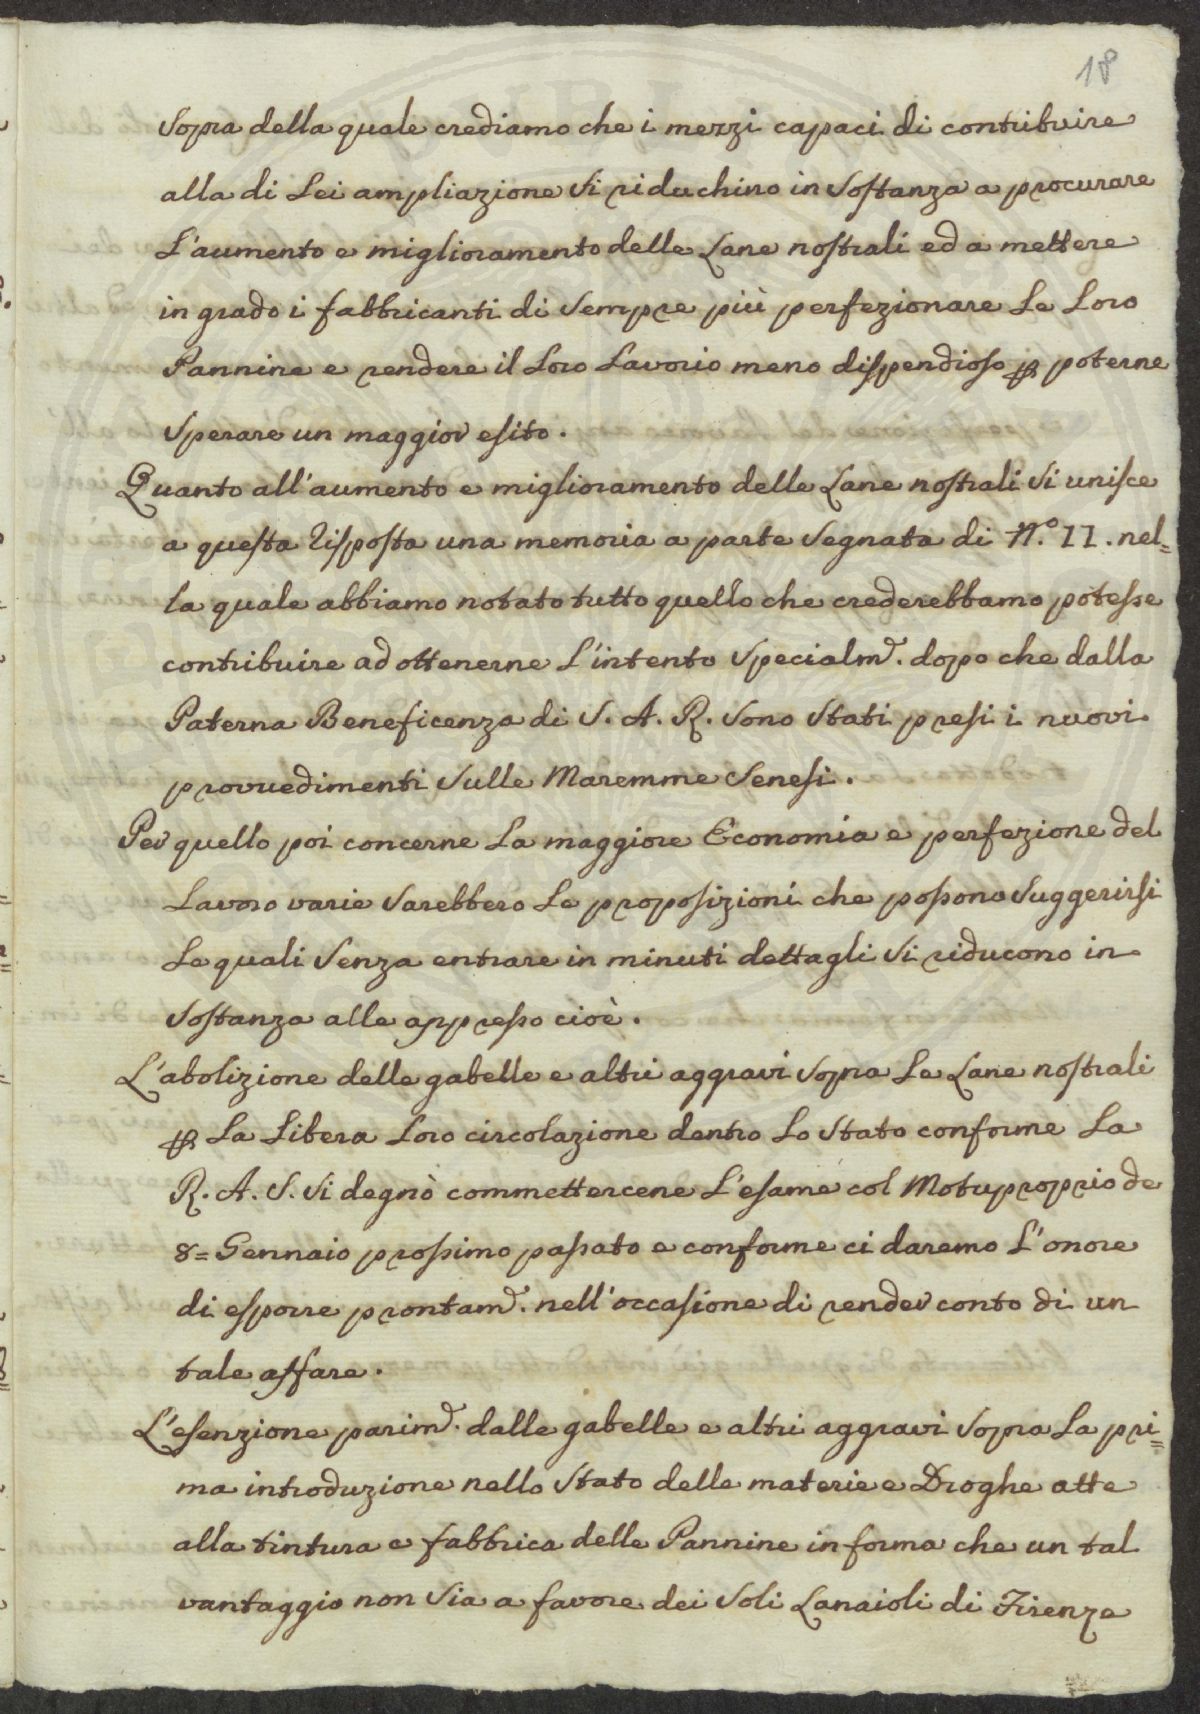 18
sopra della quale crediamo che i mezzi capaci di contribuire
alla di Lei ampliazione si riduchino in sostanza a procurare
L'aumento e miglioramento delle Lane nostrali ed a mettere
in grado i fabbricanti di sempre più perfezionare Le Loro
Pannine e rendere il Loro Lavorio meno dispendioso ꝑ poterne
sperare un maggior esito.
Quanto all'aumento e miglioramento delle Lane nostrali si unisce
a questa Risposta una memoria a parte segnata di N.º II. nel=
la quale abbiamo notato tutto quello che crederebbamo potesse
contribuire ad ottenerne L'intento specialmᵉ. dopo che dalla
Paterna Beneficenza di S. A. R. sono stati presi i nuovi
provvedimenti sulle Maremme Senesi.
Per quello poi concerne La maggiore Economia e perfezione del
Lavoro varie sarebbero Le proposizioni che possono suggerirsi
Le quali senza entrare in minuti dettagli si riducono in
sostanza alle appresso cioè.
L'abolizione delle gabelle e altri aggravi sopra Le Lane nostrali
ꝑ La Libera Loro circolazione dentro Lo Stato conforme La
R. A. S. si degnò commettercene L'esame col Motuproprio de
8= Gennaio prossimo passato e conforme ci daremo L'onore
di esporre prontamᵉ. nell'occasione di render conto di un
tale affare.
L'esenzione parimᵉ. dalle gabelle e altri aggravi sopra La pri=
ma introduzione nello Stato delle materie e Droghe atte
alla tintura e fabbrica delle Pannine in forma che un tal
vantaggio non sia a favore dei soli Lanaioli di Firenze